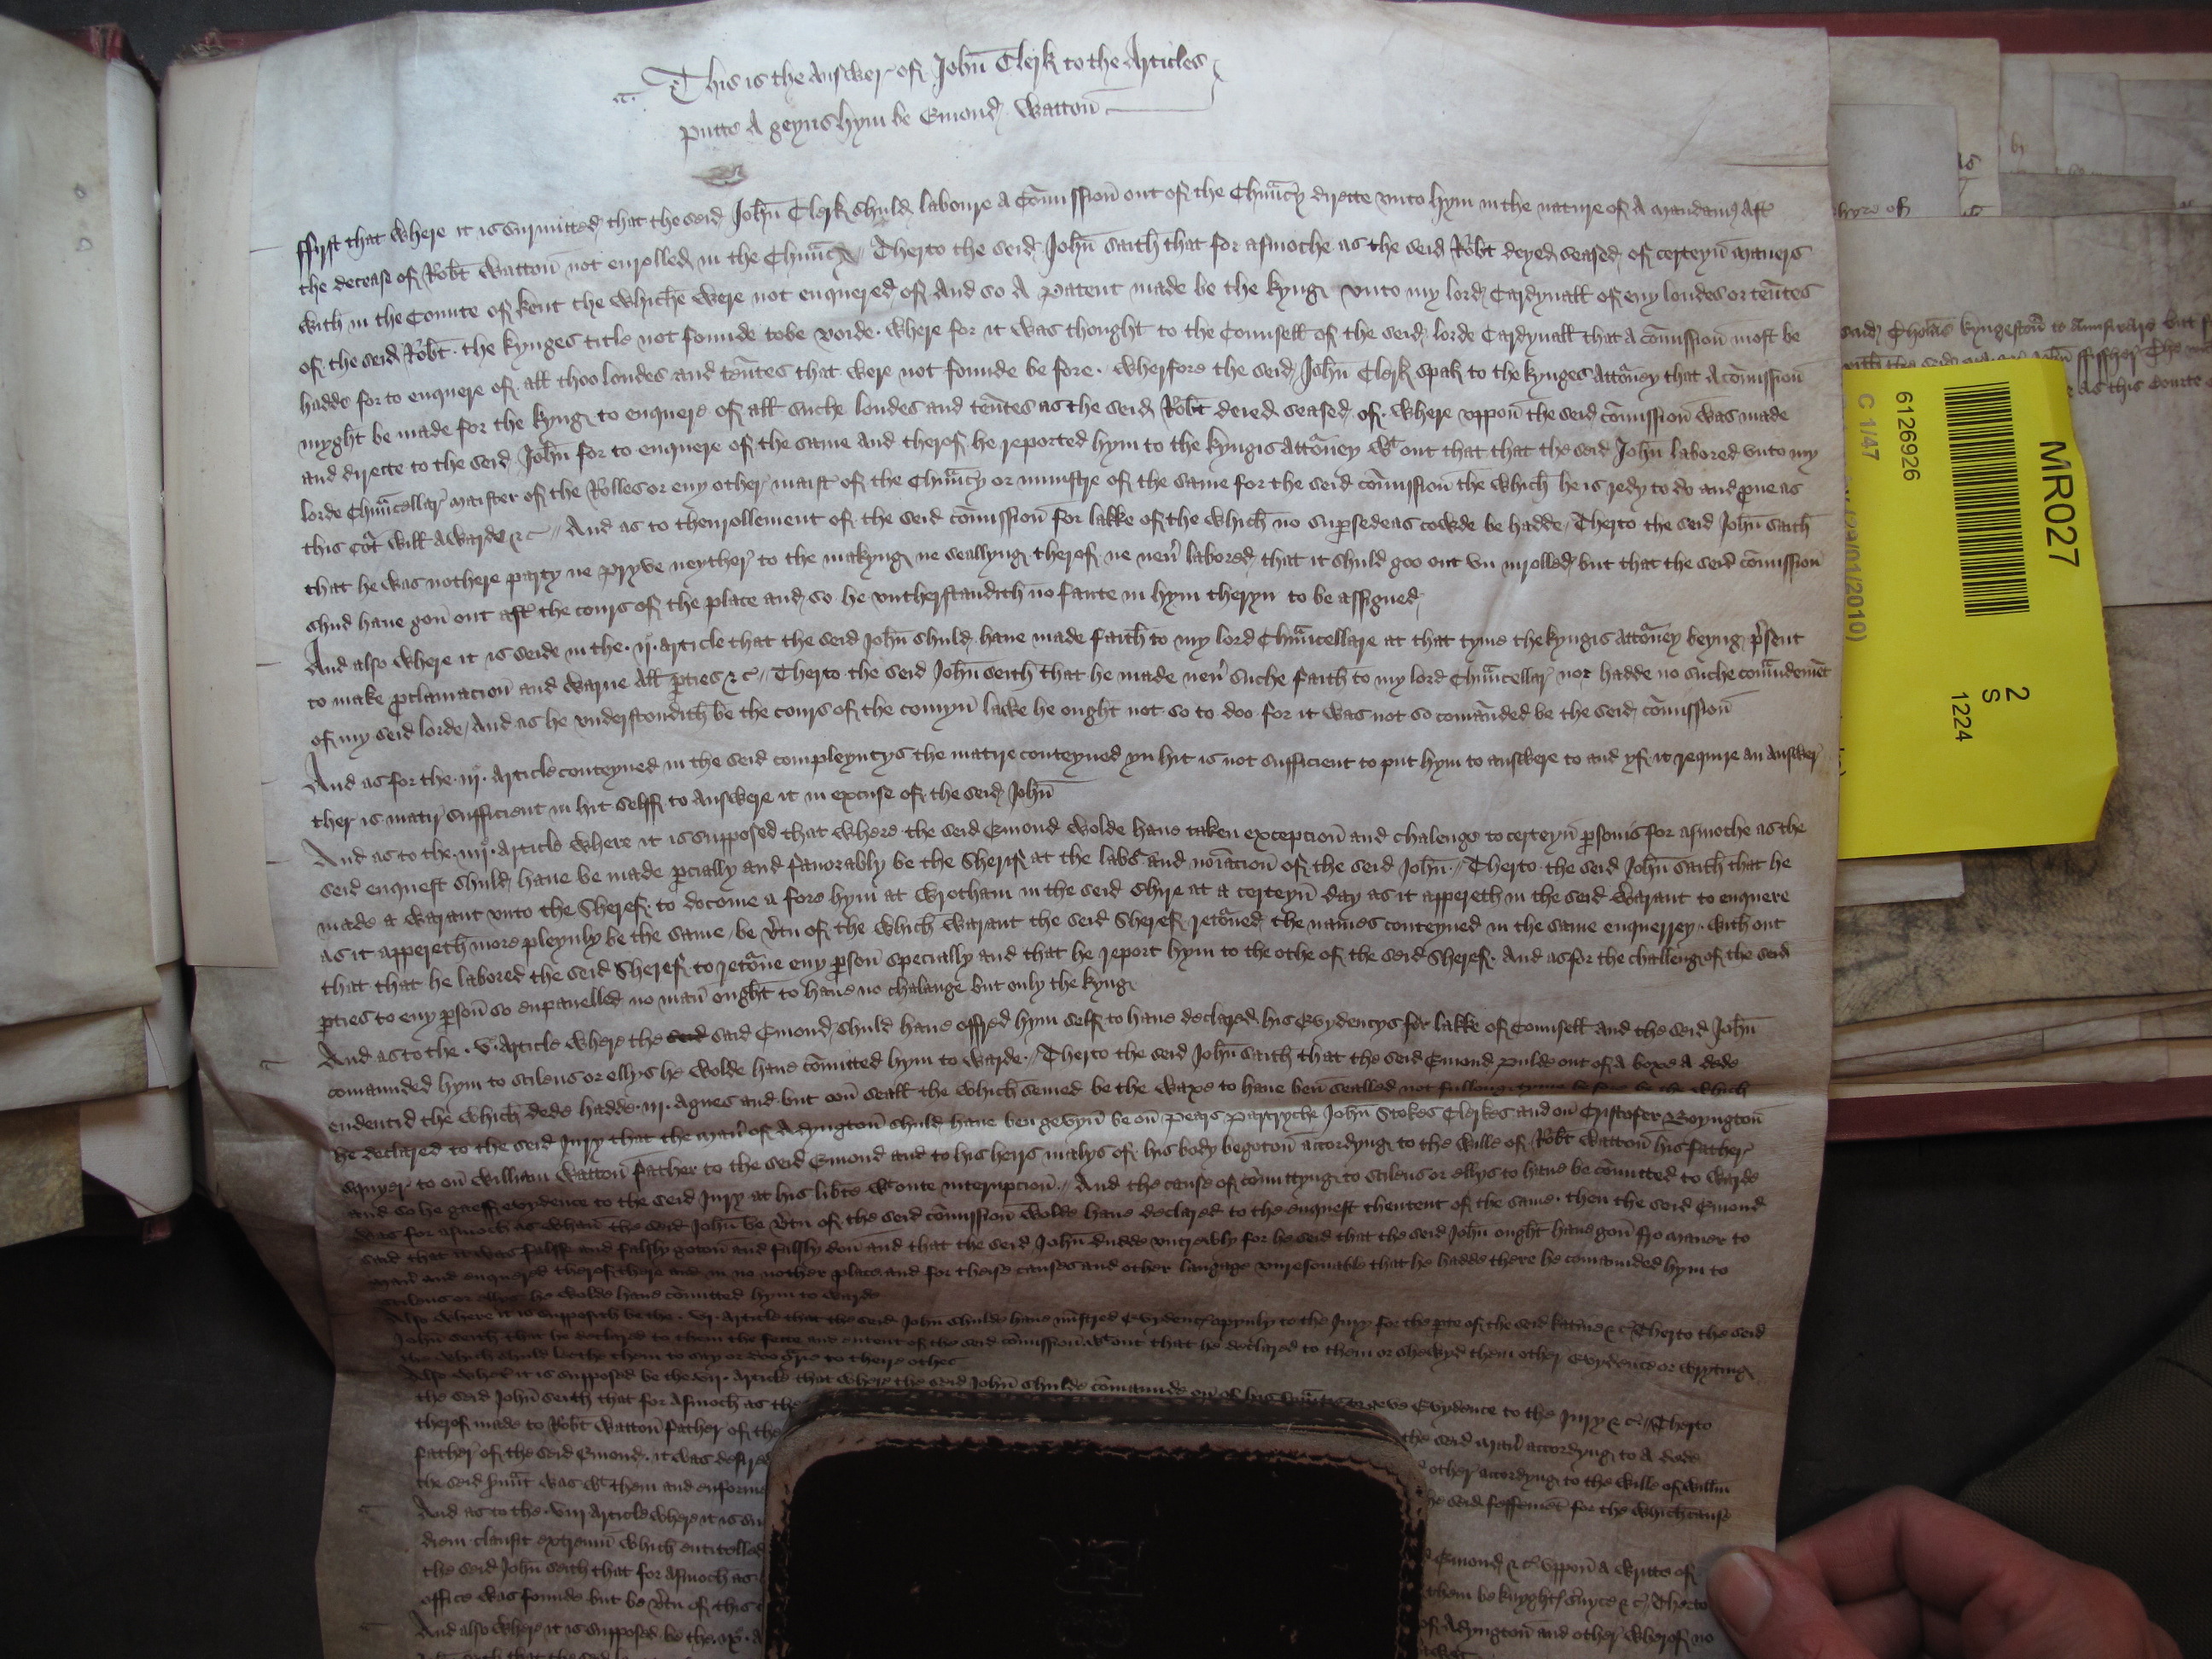 This is the answer of John Clerk to the Articles
putte A geyns hym be Emond Watton
ffyrst that where it is surmitted that the seid John Clerk shuld laboure a Comission out of the Chauncy directe vnto hym in the nature of A mandamus Aft
the decease of Robt Watton not enrolled in the Chauncy Therto the seid John saith that for asmoche as the seid Robt deyed seased of certeyn maners
with in the Counte of kent the whiche were not enquered of And so A patent made be the kyng vnto my lord Cardynall of eny londes or tentes
of the seid Robt the kynges title not founde tobe voide where for it was thought to the Counsell of the seid lorde Cardynall that A comission most be
hadde for to enquere of all thoo londes and tentes that were not founde be fore wherfore the seid John Clerk spak to the kynges Attorney that A comission
myght be made for the kyng to enquere of all suche londes and tentes as the seid Robt deied seased of where vppon the seid comission was made
and directe to the seid John for to enquere of the same and therof he reported hym to the kyngis Attorney wt out that that the seid John labored vnto my
lorde Chauncellar maister of the Rolles or eny other maist of the Chauncy or ministre of the same for the seid comission the which he is redy to do and prue as
this Cort will Awarde &c And as to thenrollement of the seid comission for lakke of the which no supersedeas cowde be hadde Therto the seid John saith
that he was nothere party ne pryve neyther to the makyng ne seallyng therof ne neuer labored that it shuld goo out vn inrolled but that the seid comission
shud haue gon out aft the cours of the place and so he vntherstandith no faute in hym theryn to be assigned
And also where it is seide in the ij article that the seid John shuld haue made faith to my lord Chauncellare at that tyme the kyngis attorney beyng present
to make proclamacion and warne All parties &c Therto the seid John seith that he made neuer suche faith to my lord Chauncellar nor hadde no suche comaundement
of my seid lorde And as he vnderstondith be the cours of the comyn lawe he ought not so to doo for it was not so comanded be the seid comission
And as for the iij Article conteyned in the seid compleyntys the matire conteyned yn hit is not sufficient to put hym to answere to and yf it require an answer
ther is matir sufficient in hit selff to Answere it in excuse of the seid John
And as to the iiij article where it is supposed that where the seid Emond wolde haue taken excepcion and chalenge to certeyn persones for asmoche as the
seid enquest shuld haue be made parcially and fauorably be the Sherif at the labor and nominacion of the seid John Therto the seid John saith that he
made a warant vnto the Sheref to do come a fore hym at Wrotham in the seid Shire at a certeyn day as it appereth in the seid warant to enquere
as it appereth more pleynly be the same be vertu of the which warant the seid Sheref retorned the names conteyned in the same enquerrey with out
that that he labored the seid Sheref to retorne eny person specially and that he report hym to the othe of the seid Sheref And as for the challeng of the seid
parties to eny person so enpanelled no man ought to haue no chalange but only the kyng
And as to the v Article where the seid said Emond shuld haue offred hym self to haue declared his Evydencys for lakke of Counsell and the seid John
comaunded hym to scilens or ellys he wolde haue comitted hym to warde Therto the seid John saith that the seid Emond pulde out of a boxe A dede
endentid the which dede hadde iij Agnes and but oon seall the which semed be the waxe to haue ben sealled not full long tyme before be the which
he declared to the seid Jury that the maner of Adyngton shuld haue ben gevyn be on Peers Partryche John Stokes Clerkes and on Cristofer Boyngton
squyer to on William Watton father to the seid Emond and to his heirs malys of his body begoton accordyng to the wille of Robt Watton his father
and so he gaeff evydence to the seid Jury at his liberte wt oute interupcion And the cause of comittyng to scilens or ellys to haue be comitted to warde
was for asmoch as whan the seid John be vertu of the seid comission wolde haue declared to the enquest thentent of the same then the seid Emond
said that it was falsse and falsly goton and falsly don and that the seid John dudde vntrewly for he seid that the seid John ought haue gon fro maner to
maner and enquered therof there and in no nother place and for theise causes and other langage vnresonable that he hadde there he comaunded hym to
scilens or ellys he wolde haue comitted hym to warde
Also where it is supposith be the vj Article that the seid John shulde haue ministred Evydence oppynly to the Jury for the parte of the seid &c Therto the seid
John seith that he declared to them the fecte and entent of the seid comission wt out that he declared to them or shewyd them other Evydence or wrytyng
the which shuld lede them to say or doo contrarie to theire othes
Also where it is supposed be the vij Article that where the seid John shulde comaunde on of his servantes to geve Evydence to the Jury &c Therto
the seid John seith that for Asmoch as the
therof made to Robt Watton father of the the seid maner accordyng to A dede
father of the seid Emond it was desired other accordyng to the wille of Willm
the seid servant was wt them and enforme the seid feffement for the which cause
And as to the viij Article where it is su Emond &c vppon a writte of
diem clausit extremum which entitelled them be knyght servyce &c Therto
the seid John seith that for Asmoch as of Adyngton and other wherof no
office was founde but be vertu of this
And also where it is supposed be the ix A
MR027
61266926
C 1/47
(29/01/2010)
2
S
1224